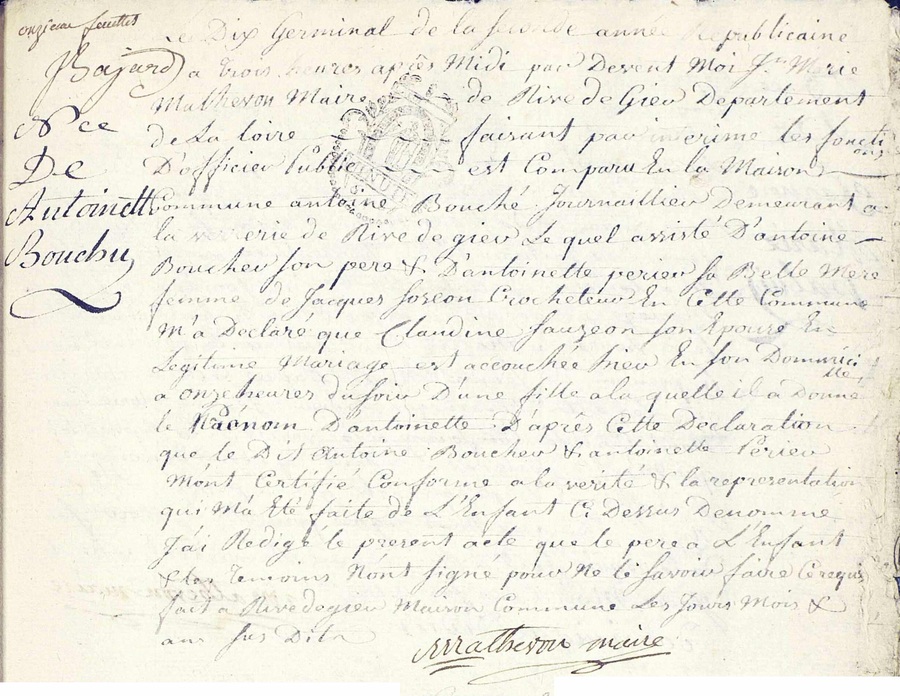 onzieme feuillet
JBajard
N.ce
De
Antoinette
Bouchu
Le Dix Germinal de la seconde année Republicaine
a trois heures après Midi par Devent Moi Jn Marie
Mathevon Maire de Rive de Gier Departement
de La Loire faisant par interime les foncti
ons
D'officier Public est Comparu En la Maison
Commune antoine Bouché Journaillier Demeurant a
la verrerie de Rive de gier Le quel assisté D'antoine
Boucher son pere & D'antoinette perier sa Belle Mere
femme de Jacques Crocheteur En Cette Commune
M'a Declaré que Claudine Sauzeon son Epouse En
Legitime Mariage est accouchée hier En son Dommici
lle,
a onze heures du soir D'une fille a la quelle il à Donné
le Prénom D'antoinette D'après Cette Declaration
que le Dit Antoine Boucher & antoinette Périer
M'ont Certifié Conforme a la verité & la representation
qui M'a Eté faite de L'Enfant Ci Dessus Denommé
J'ai Redigé le present acte que le pere a L'Enfant
& les Temoins N'ont signé pour Ne le Savoir faire Ce requis
fait a Rive de gier Maison Commune Les Jours Mois &
an sus Dits
Mathevon maire